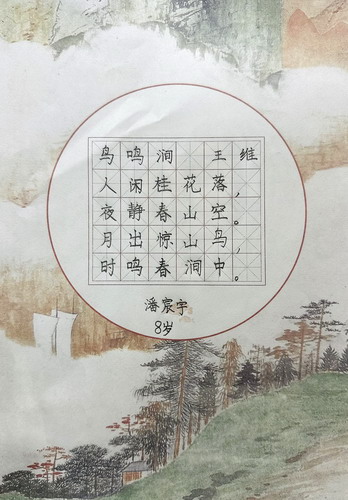 鸟鸣涧 王维
人闲桂花落，
夜静春山空。
月出惊山鸟，
时鸣春涧中。
潘宸宇
8岁